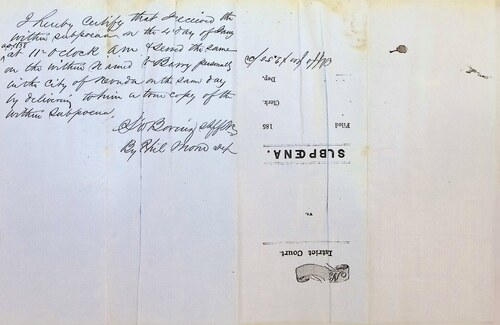 I hereby Certify that I received the
within subpoena on the 4 day of
AD 1858
at 11 O'clock AM & served the same
on the within Named Barry personally
in the City of Nevada on the same day
by delivering to him a true copy of the
within subpoena,
S W Boring Shff
By Phil Moore
District Court.
vs.
SUBPŒNA.
Filed 185
Clerk.
Dep.